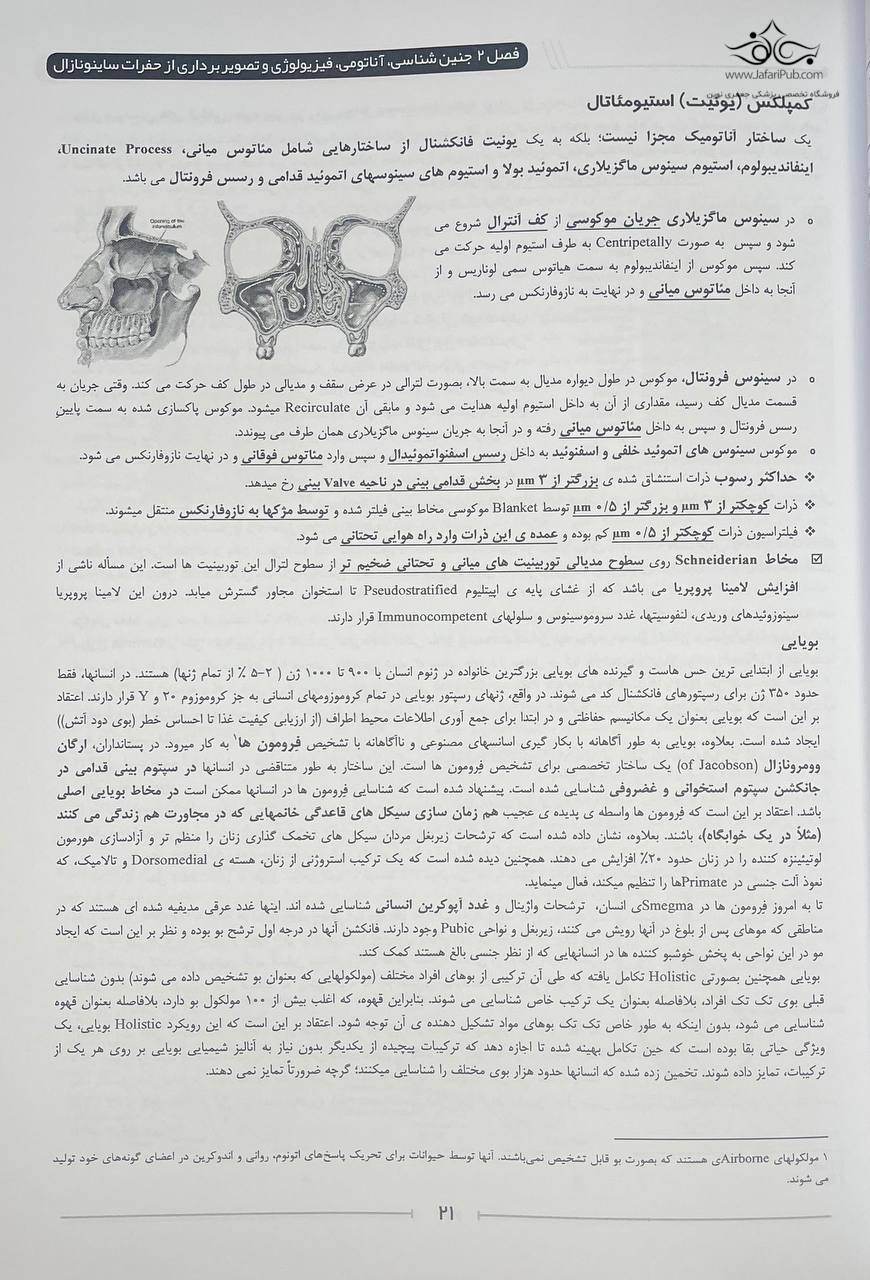 فصل ۲ جنین شناسی، آناتومی، فیزیولوژی و تصویر برداری از حفرات ساینونازال
www.JafariPub.com
فروشگاه تخصصی پزشکی جعفری نوین
کمپلکس (یونیت) استیومئاتال
یک ساختار آناتومیک مجزا نیست؛ بلکه به یک یونیت فانکشنال از ساختارهایی شامل مئاتوس میانی، Uncinate Process،
اینفاندیبولوم، استیوم سینوس ماگزیلاری، اتموئید بولا و استیوم های سینوسهای اتموئید قدامی و رسس فرونتال می باشد.
Opening of the infundibulum
o در سینوس ماگزیلاری جریان موکوسی از کف آنترال شروع می
شود و سپس به صورت Centripetally به طرف استیوم اولیه حرکت می
کند. سپس موکوس از اینفاندیبولوم به سمت هیاتوس سمی لوناریس و از
آنجا به داخل مئاتوس میانی و در نهایت به نازوفارنکس می رسد.
o در سینوس فرونتال، موکوس در طول دیواره مدیال به سمت بالا، بصورت لترالی در عرض سقف و مدیالی در طول کف حرکت می کند. وقتی جریان به
قسمت مدیال کف رسید، مقداری از آن به داخل استیوم اولیه هدایت می شود و مابقی آن Recirculate میشود. موکوس پاکسازی شده به سمت پایین
رسس فرونتال و سپس به داخل مئاتوس میانی رفته و در آنجا به جریان سینوس ماگزیلاری همان طرف می پیوندد.
o موکوس سینوس های اتموئید خلفی و اسفنوئید به داخل رسس اسفنواتموئیدال و سپس وارد مئاتوس فوقانی و در نهایت نازوفارنکس می شود.
❖ حداکثر رسوب ذرات استنشاق شده ی بزرگتر از ۳ µm در بخش قدامی بینی در ناحیه Valve بینی رخ میدهد.
❖ ذرات کوچکتر از ۳ µm و بزرگتر از ۰/۵ µm توسط Blanket موکوسی مخاط بینی فیلتر شده و توسط مژکها به نازوفارنکس منتقل میشوند.
❖ فیلتراسیون ذرات کوچکتر از ۰/۵ µm کم بوده و عمده ی این ذرات وارد راه هوایی تحتانی می شود.
☑ مخاط Schneiderian روی سطوح مدیالی توربینیت های میانی و تحتانی ضخیم تر از سطوح لترال این توربینیت ها است. این مسأله ناشی از
افزایش لامینا پروپریا می باشد که از غشای پایه ی اپیتلیوم Pseudostratified تا استخوان مجاور گسترش میابد. درون این لامینا پروپریا
سینوزوئیدهای وریدی، لنفوسیتها، غدد سروموسینوس و سلولهای Immunocompetent قرار دارند.
بویایی
بویایی از ابتدایی ترین حس هاست و گیرنده های بویایی بزرگترین خانواده در ژنوم انسان با ۹۰۰ تا ۱۰۰۰ ژن ( ۲-۵ ٪ از تمام ژنها) هستند. در انسانها، فقط
حدود ۳۵۰ ژن برای رسپتورهای فانکشنال کد می شوند. در واقع، ژنهای رسپتور بویایی در تمام کروموزومهای انسانی به جز کروموزوم ۲۰ و Y قرار دارند. اعتقاد
بر این است که بویایی بعنوان یک مکانیسم حفاظتی و در ابتدا برای جمع آوری اطلاعات محیط اطراف (از ارزیابی کیفیت غذا تا احساس خطر (بوی دود آتش))
ایجاد شده است. بعلاوه، بویایی به طور آگاهانه با بکار گیری اسانسهای مصنوعی و ناآگاهانه با تشخیص فرومون ها۱ به کار میرود. در پستانداران، ارگان
وومرونازال (of Jacobson) یک ساختار تخصصی برای تشخیص فرومون ها است. این ساختار به طور متناقضی در انسانها در سپتوم بینی قدامی در
جانکشن سپتوم استخوانی و غضروفی شناسایی شده است. پیشنهاد شده است که شناسایی فرومون ها در انسانها ممکن است در مخاط بویایی اصلی
باشد. اعتقاد بر این است که فرومون ها واسطه ی پدیده ی عجیب هم زمان سازی سیکل های قاعدگی خانمهایی که در مجاورت هم زندگی می کنند
(مثلاً در یک خوابگاه)، باشند. بعلاوه، نشان داده شده است که ترشحات زیربغل مردان سیکل های تخمک گذاری زنان را منظم تر و آزادسازی هورمون
لوتیئنیزه کننده را در زنان حدود ۲۰٪ افزایش می دهند. همچنین دیده شده است که یک ترکیب استروژنی از زنان، هسته ی Dorsomedial و تالامیک، که
نعوذ آلت جنسی در Primateها را تنظیم میکند، فعال مینماید.
تا به امروز فرومون ها در Smegmaی انسان، ترشحات واژینال و غدد آپوکرین انسانی شناسایی شده اند. اینها غدد عرقی مدیفیه شده ای هستند که در
مناطقی که موهای پس از بلوغ در آنها رویش می کنند، زیربغل و نواحی Pubic وجود دارند. فانکشن آنها در درجه اول ترشح بو بوده و نظر بر این است که ایجاد
مو در این نواحی به پخش خوشبو کننده ها در انسانهایی که از نظر جنسی بالغ هستند کمک کند.
بویایی همچنین بصورتی Holistic تکامل یافته که طی آن ترکیبی از بوهای افراد مختلف (مولکولهایی که بعنوان بو تشخیص داده می شوند) بدون شناسایی
قبلی بوی تک تک افراد، بلافاصله بعنوان یک ترکیب خاص شناسایی می شوند. بنابراین قهوه، که اغلب بیش از ۱۰۰ مولکول بو دارد، بلافاصله بعنوان قهوه
شناسایی می شود، بدون اینکه به طور خاص تک تک بوهای مواد تشکیل دهنده ی آن توجه شود. اعتقاد بر این است که این رویکرد Holistic بویایی، یک
ویژگی حیاتی بقا بوده است که حین تکامل بهینه شده تا اجازه دهد که ترکیبات پیچیده از یکدیگر بدون نیاز به آنالیز شیمیایی بویایی بر روی هر یک از
ترکیبات، تمایز داده شوند. تخمین زده شده که انسانها حدود هزار بوی مختلف را شناسایی میکنند؛ گرچه ضرورتاً تمایز نمی دهند.
۱ مولکولهای Airborneی هستند که بصورت بو قابل تشخیص نمی‌باشند. آنها توسط حیوانات برای تحریک پاسخ‌های اتونوم، روانی و اندوکرین در اعضای گونه‌های خود تولید
می شوند.
۲۱